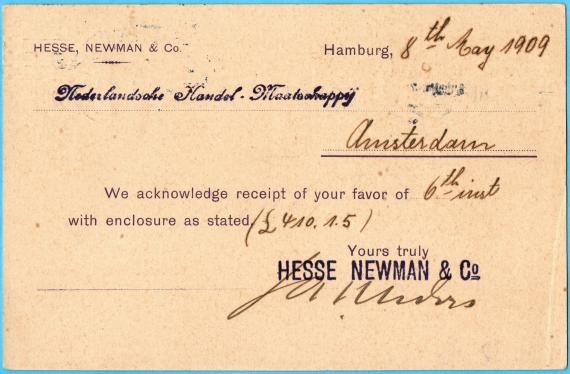 HESSE, NEWMAN & Co.
Hamburg, 8th May 1909
Nederlandsche Handel-Maatschappij
Amsterdam
We acknowledge receipt of your favor of 6th inst
with enclosure as stated (£410.1.5)
Yours truly
HESSE NEWMAN & Co